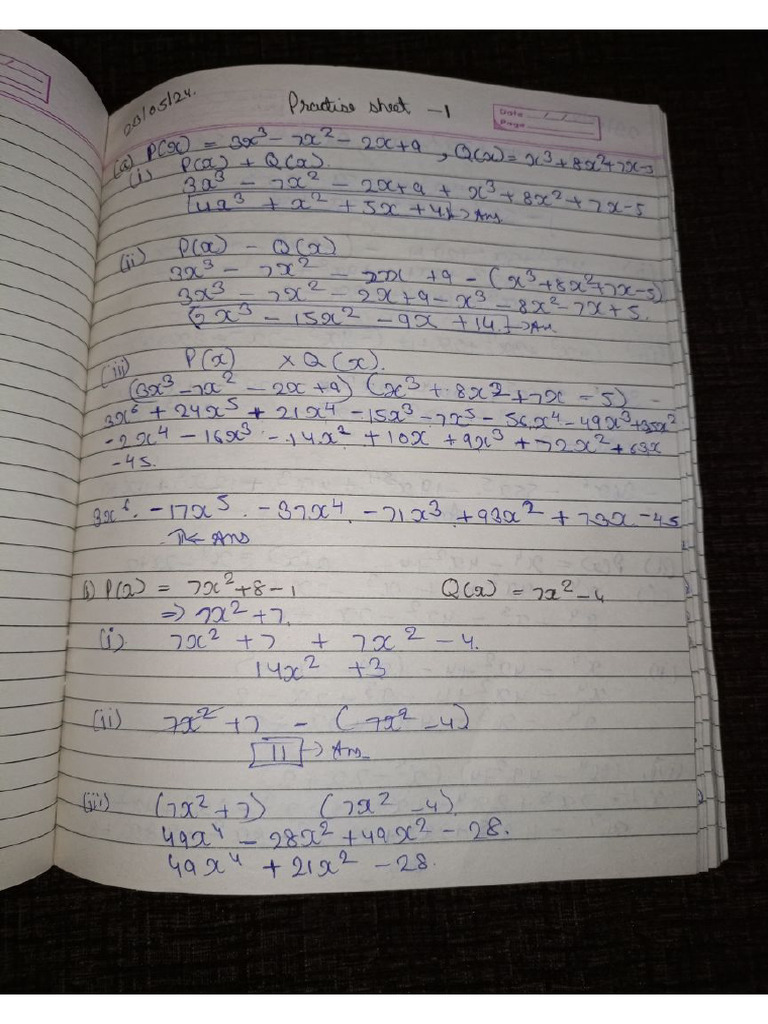 23/05/24.
Practise sheet - 1
Date
Page
(a) P(x) = 3x³ - 7x² - 2x + 9 , Q(x) = x³ + 8x² + 7x - 5
(i) P(x) + Q(x).
3x³ - 7x² - 2x + 9 + x³ + 8x² + 7x - 5
4x³ + x² + 5x + 4 → Ans
(ii) P(x) - Q(x)
3x³ - 7x² - 2x + 9 - (x³ + 8x² + 7x - 5)
3x³ - 7x² - 2x + 9 - x³ - 8x² - 7x + 5.
2x³ - 15x² - 9x + 14. → An.
(iii) P(x) × Q(x).
(3x³ - 7x² - 2x + 9) (x³ + 8x² + 7x - 5)
3x⁶ + 24x⁵ + 21x⁴ - 15x³ - 7x⁵ - 56x⁴ - 49x³ + 35x²
- 2x⁴ - 16x³ - 14x² + 10x + 9x³ + 72x² + 63x
- 45.
3x⁶ - 17x⁵ - 37x⁴ - 71x³ + 93x² + 73x - 45
← Ans
b) P(x) = 7x² + 8 - 1 Q(x) = 7x² - 4
⇒ 7x² + 7.
(i) 7x² + 7 + 7x² - 4.
14x² + 3
(ii) 7x² + 7 - (7x² - 4)
11 → Ans
(iii) (7x² + 7) (7x² - 4)
49x⁴ - 28x² + 49x² - 28.
49x⁴ + 21x² - 28.